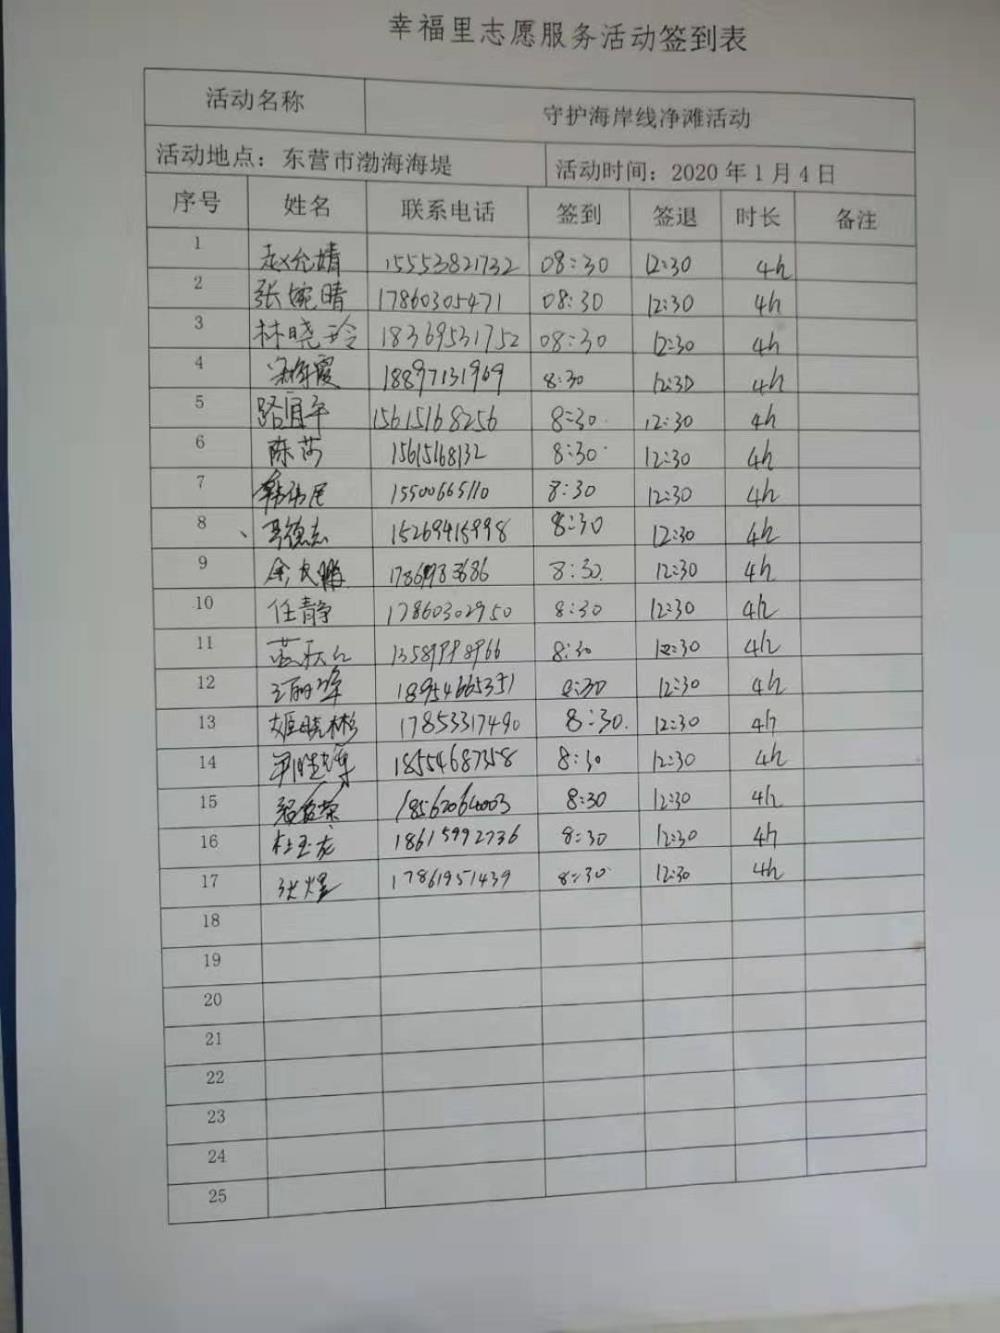 幸福里志愿服务活动签到表
活动名称 守护海岸线净滩活动
活动地点：东营市渤海海堤 活动时间：2020 年 1 月 4 日
序号 姓名 联系电话 签到 签退 时长 备注
1 赵允婧 15553821732 08:30 12:30 4h
2 张婉晴 17860305471 08:30 12:30 4h
3 林晓玲 18369531752 08:30 12:30 4h
4 18897131969 8:30 12:30 4h
5 路宜平 15615168256 8:30 12:30 4h
6 陈莎 15615168132 8:30 12:30 4h
7 15500665110 8:30 12:30 4h
8 德志 15269415998 8:30 12:30 4h
9 8:30 12:30 4h
10 任静 17860302950 8:30 12:30 4h
11 8:30 12:30 4h
12 18954665351 8:30 12:30 4h
13 姬晓彬 17853317490 8:30 12:30 4h
14 18554687358 8:30 12:30 4h
15 18562064003 8:30 12:30 4h
16 杜玉龙 18615992736 8:30 12:30 4h
17 张煜 17861951439 8:30 12:30 4h
18
19
20
21
22
23
24
25